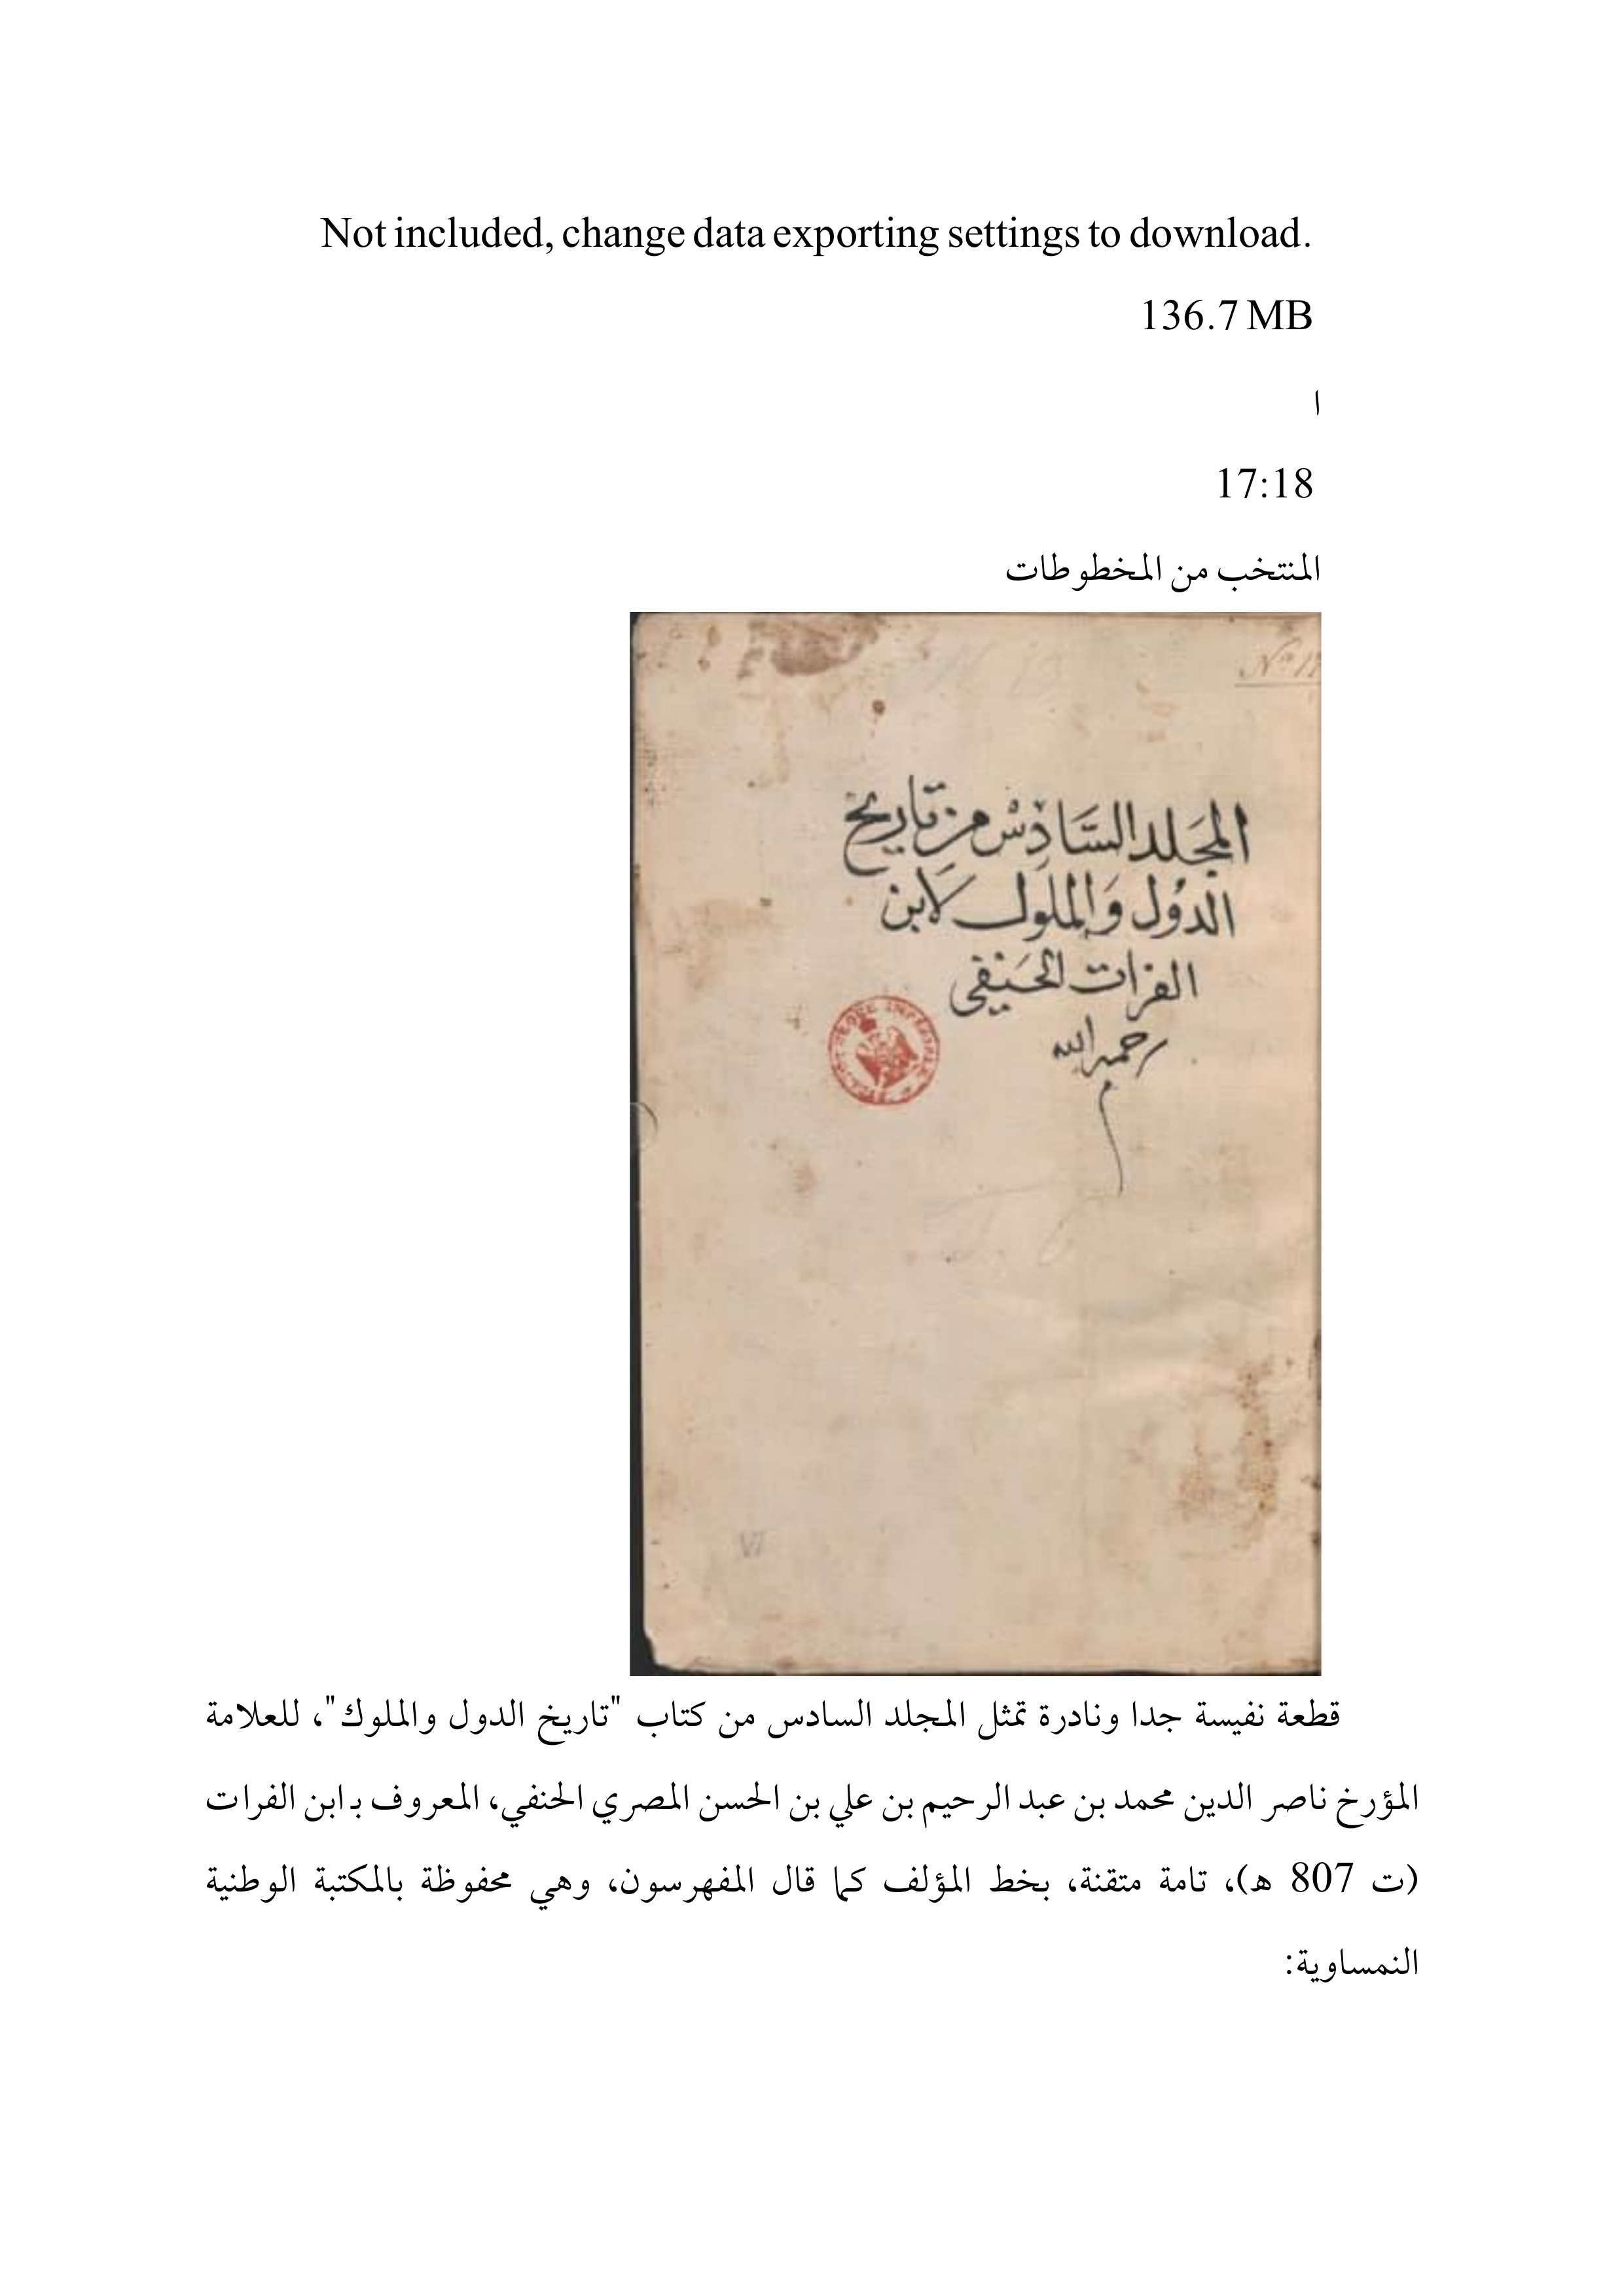 Not included, change data exporting settings to download.
136.7 MB
ا
17:18
المنتخب من المخطوطات
المجَلد السَّادِسْ من تاريخ
الدوُل وَالملوك لابن
الفرات الحَنيفى
رحمه الله
VI
قطعة نفيسة جدا ونادرة تمثل المجلد السادس من كتاب "تاريخ الدول والملوك"، للعلامة
المؤرخ ناصر الدين محمد بن عبد الرحيم بن علي بن الحسن المصري الحنفي، المعروف بـ ابن الفرات
(ت 807 ه)، تامة متقنة، بخط المؤلف كما قال المفهرسون، وهي محفوظة بالمكتبة الوطنية
النمساوية: